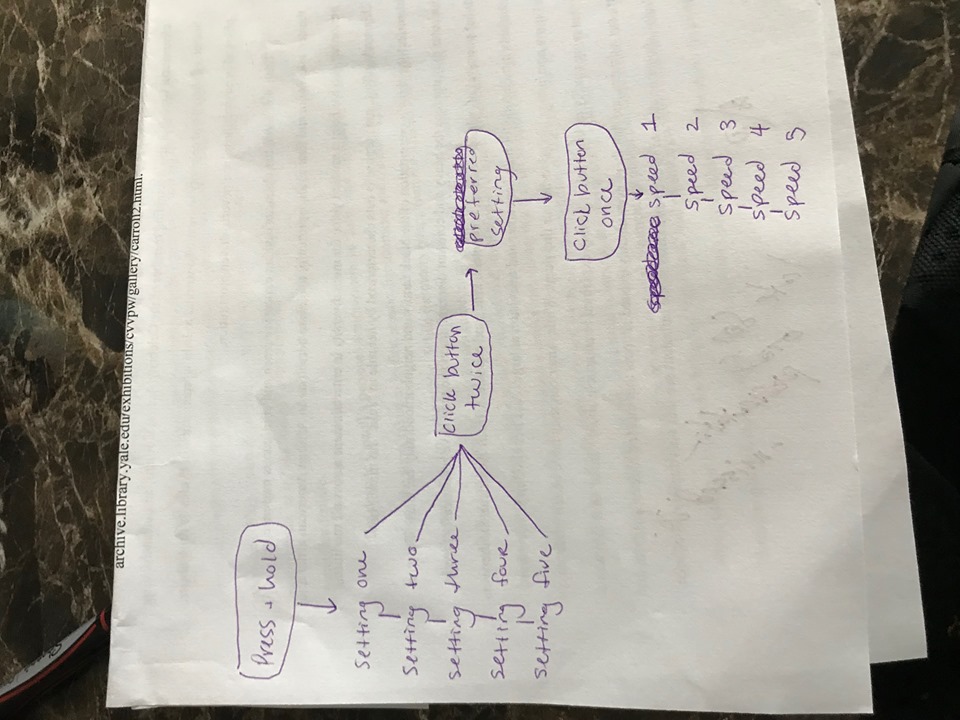 archive.library.yale.edu/exhibitions/cvvpw/gallery/carroll2.html.
Press + hold
setting one
setting two
setting three
setting four
setting five
click button
twice
preferred
setting
Click button
once
speed 1
speed 2
speed 3
speed 4
speed 5